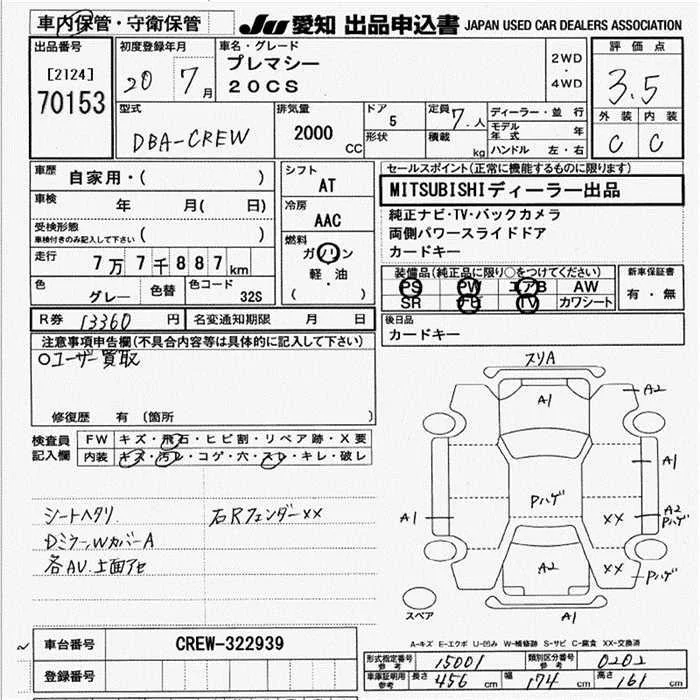 車内保管・守衛保管 JU 愛知 出品申込書 JAPAN USED CAR DEALERS ASSOCIATION
出品番号 [2124] 70153
初度登録年月 20 7月
車名・グレード プレマシー 20CS
2WD・4WD
評価点 3.5
外装 内装
C C
型式 DBA-CREW
排気量 2000 CC
ドア 5 形状
定員 7.人 積載 kg
ディーラー・並行
モデル年式 年
ハンドル 左・右
車歴 自家用・( )
車検 年 月( 日)
受検形態 車検付きのみ記入して下さい ( )
走行 7万7千887km
色 グレー 色替 色コード 32S
シフト AT
冷房 AAC
燃料 ガソリン 軽・油 ( )
セールスポイント(正常に機能するものに限ります)
MITSUBISHIディーラー出品
純正ナビ・TV・バックカメラ
両側パワースライドドア
カードキー
装備品(純正品に限り○をつけてください)
PS PW エアB AW
SR TV カワシート
新車保証書 有・無
R券 13360 円 名変通知期限 月 日
後日品 カードキー
注意事項申告欄(不具合内容等は具体的に記入して下さい)
○ユーザー買取
修復歴 有 (箇所 )
検査員記入欄
FW キズ・飛石・ヒビ割・リペア跡・X要
内装 キズ・汚レ・コゲ・穴・スレ・キレ・破レ
シートヘタリ 右RフェンダーXX
DミラーWカバーA
各AV.上面アセ
スリA
A1
A2
A1
Pハゲ
A1
XX
A2 Pハゲ
A2
XX
Pハゲ
スペア
A1
A-キズ E-エクボ U-凹み W-補修跡 S-サビ C-腐食 XX-交換済
車台番号 CREW-322939
登録番号
形式指定番号 参考 15001 類別区分番号 参考 0202
車庫証明用 参考 長さ 456 cm 幅 174 cm 高さ 161 cm